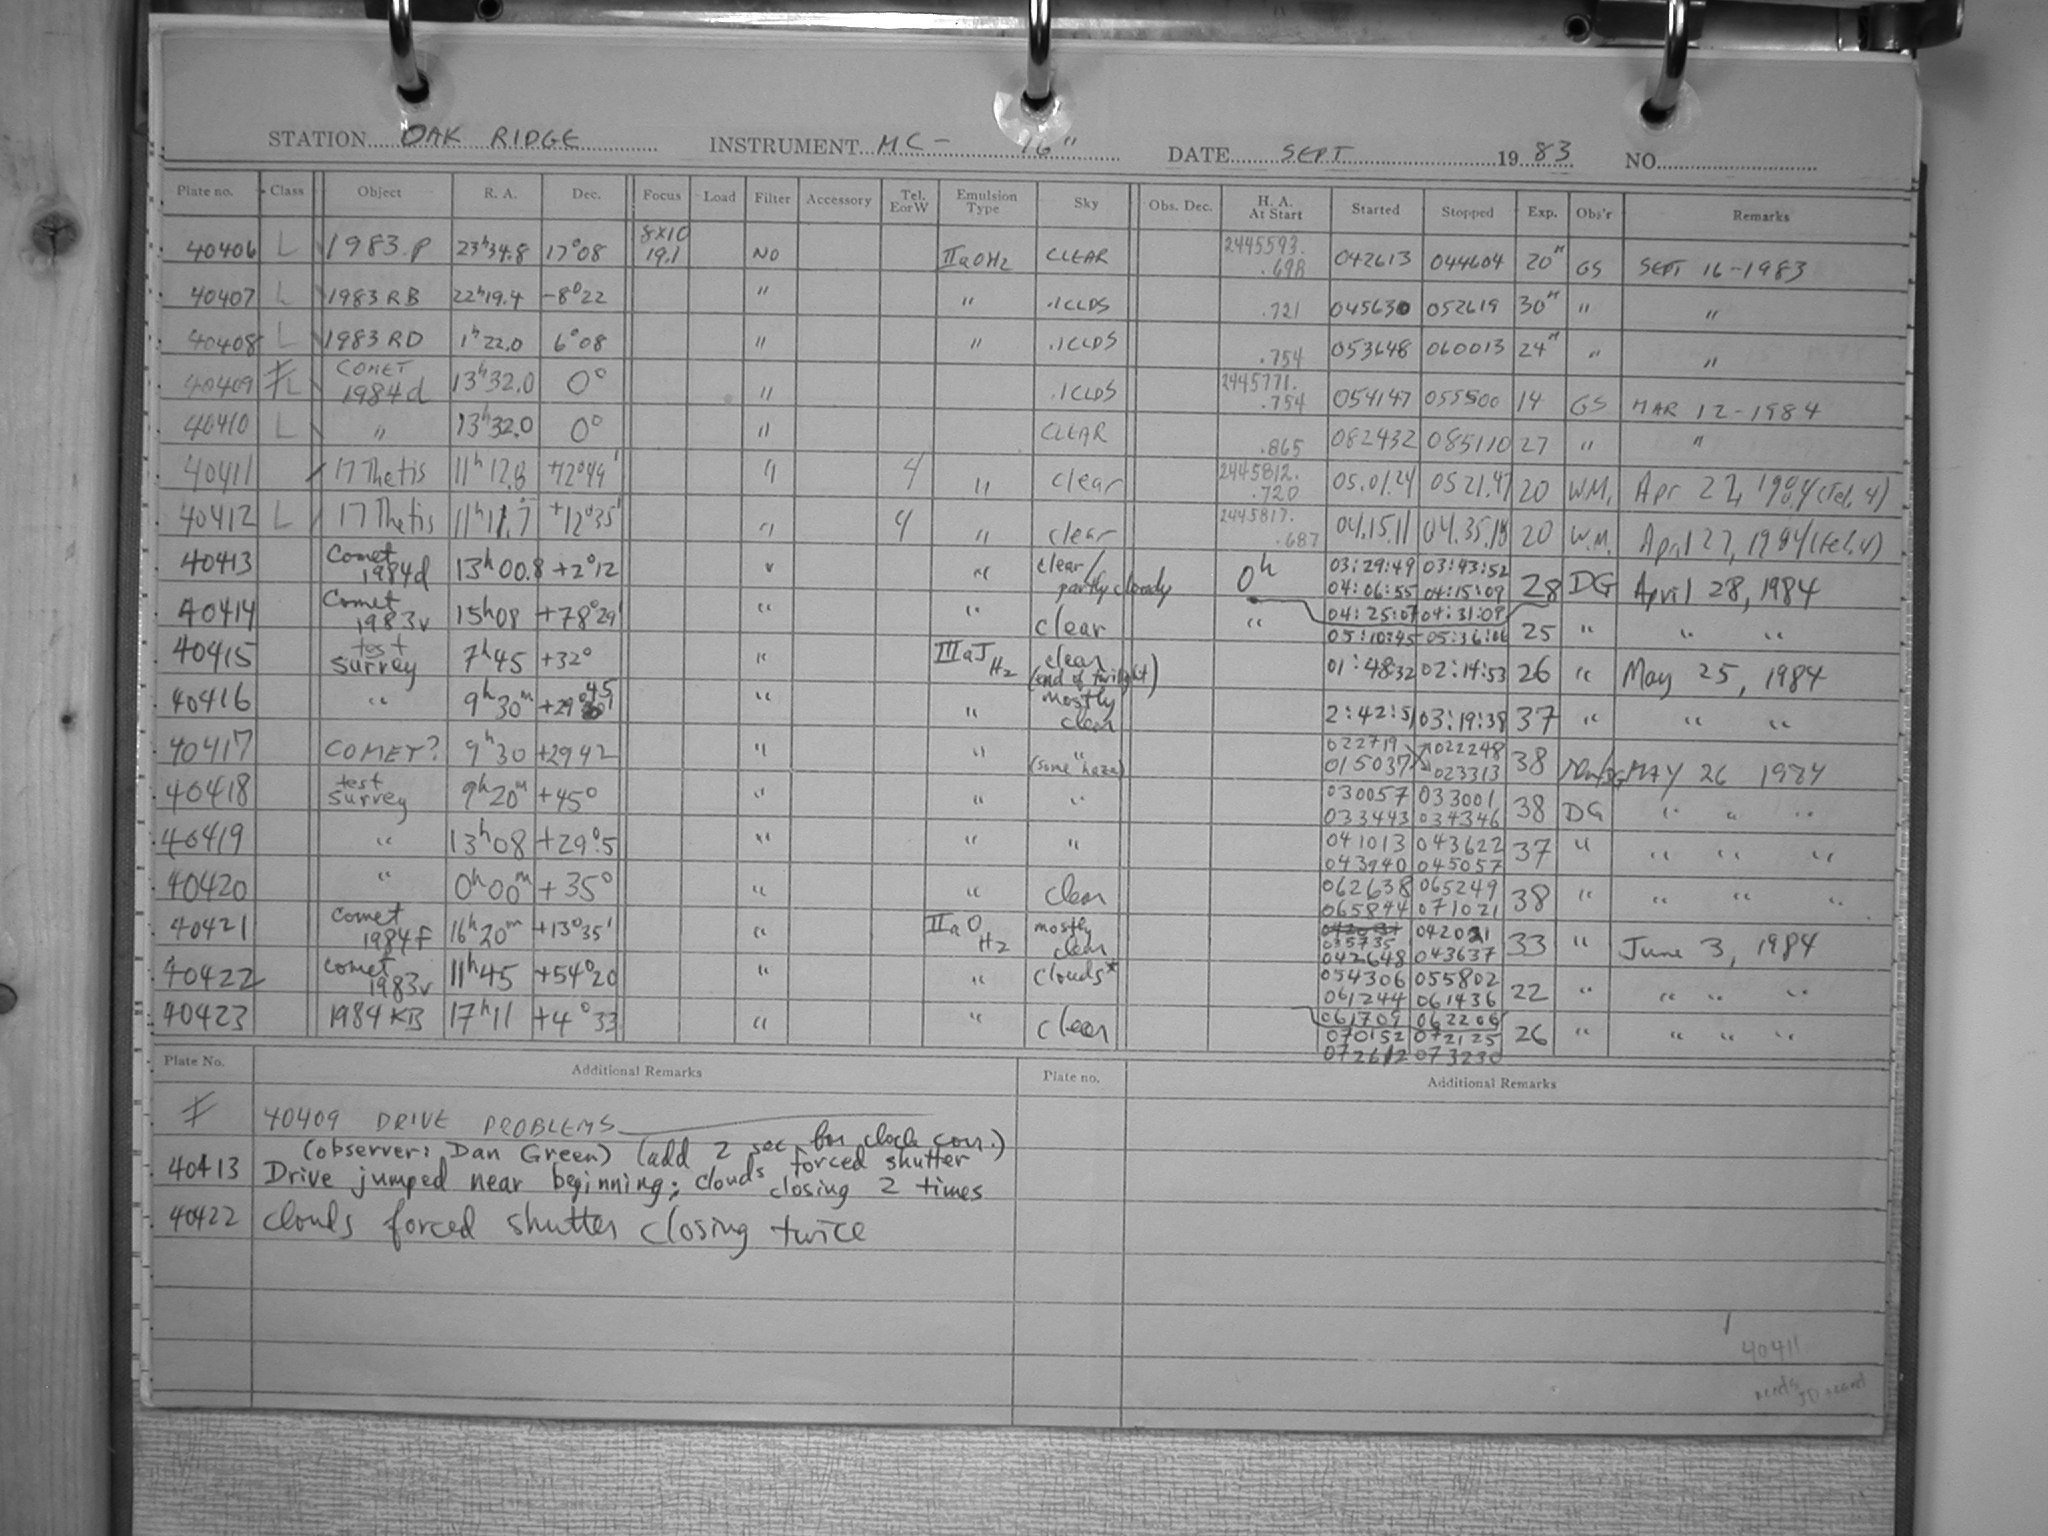 STATION OAK RIDGE INSTRUMENT MC- 16" DATE SEPT 19 83 NO
Plate no. Class Object R. A. Dec. Focus Load Filter Accessory Tel. EorW Emulsion Type Sky Obs. Dec. H. A. At Start Started Stopped Exp. Obs'r Remarks
40406 L 1983 P 23h34.8 17°08 8x10 19.1 NO IIaOH2 CLEAR 2445593. .698 042613 044604 20m GS SEPT 16-1983
40407 L 1983 RB 22h19.4 -8°22 " " .1CLDS .721 045630 052619 30m " "
40408 L 1983 RD 1h22.0 6°08 " " .1CLDS .754 053648 060013 24m " "
40409 L COMET 1984d 13h32.0 0° " .1CLDS 2445771. .754 054147 055500 14 GS MAR 12-1984
40410 L " 13h32.0 0° " CLEAR .865 082432 085110 27 " "
40411 17 Thetis 11h12.8 +12°44' " 4 " clear 2445812. .720 05.01.24 0521.47 20 W.M. Apr 22, 1984 (Tel. 4)
40412 L 17 Thetis 11h11.7 +12°35' " 4 " clear 2445817. .687 04.15.11 04.35.18 20 W.M. April 27, 1984 (Tel. 4)
40413 Comet 1984d 13h00.8 +2°12 " " clear/ partly cloudy 0h 03:29:49 03:43:52 04:06:55 04:15:09 04:25:07 04:31:09 28 DG April 28, 1984
40414 Comet 1983v 15h08 +78°29' " " clear " 05:10:45 05:36:06 25 " " "
40415 test survey 7h45 +32° " IIIaJ H2 clear (end of twilight) 01:48:32 02:14:53 26 " May 25, 1984
40416 " 9h30m +29°45 " " mostly clear 2:42:51 03:19:38 37 " " "
40417 COMET? 9h30 +2942 " " " (some haze) 022719 022248 015037 023313 38 MAY 26 1984
40418 test survey 9h20m +45° " " " 030057 033001 033443 034346 38 DG " " "
40419 " 13h08 +29°.5 " " " 041013 043622 043940 045057 37 " " " "
40420 " 0h00m +35° " " clear 062638 065249 065844 071021 38 " " " "
40421 Comet 1984f 16h20m +13°35' " IIaO H2 mostly clear 035735 042021 042648 043637 33 " June 3, 1984
40422 Comet 1983v 11h45 +54°20 " " clouds* 054306 055802 061244 061436 061709 062206 22 " " " "
40423 1984 KB 17h11 +4°33 " " clear 070152 072125 072612 073230 26 " " " "
Plate No. Additional Remarks Plate no. Additional Remarks
40409 DRIVE PROBLEMS
(observer: Dan Green) (add 2 sec. for clock corr.)
40413 Drive jumped near beginning; clouds forced shutter closing 2 times
40422 clouds forced shutter closing twice
40411
needs JD